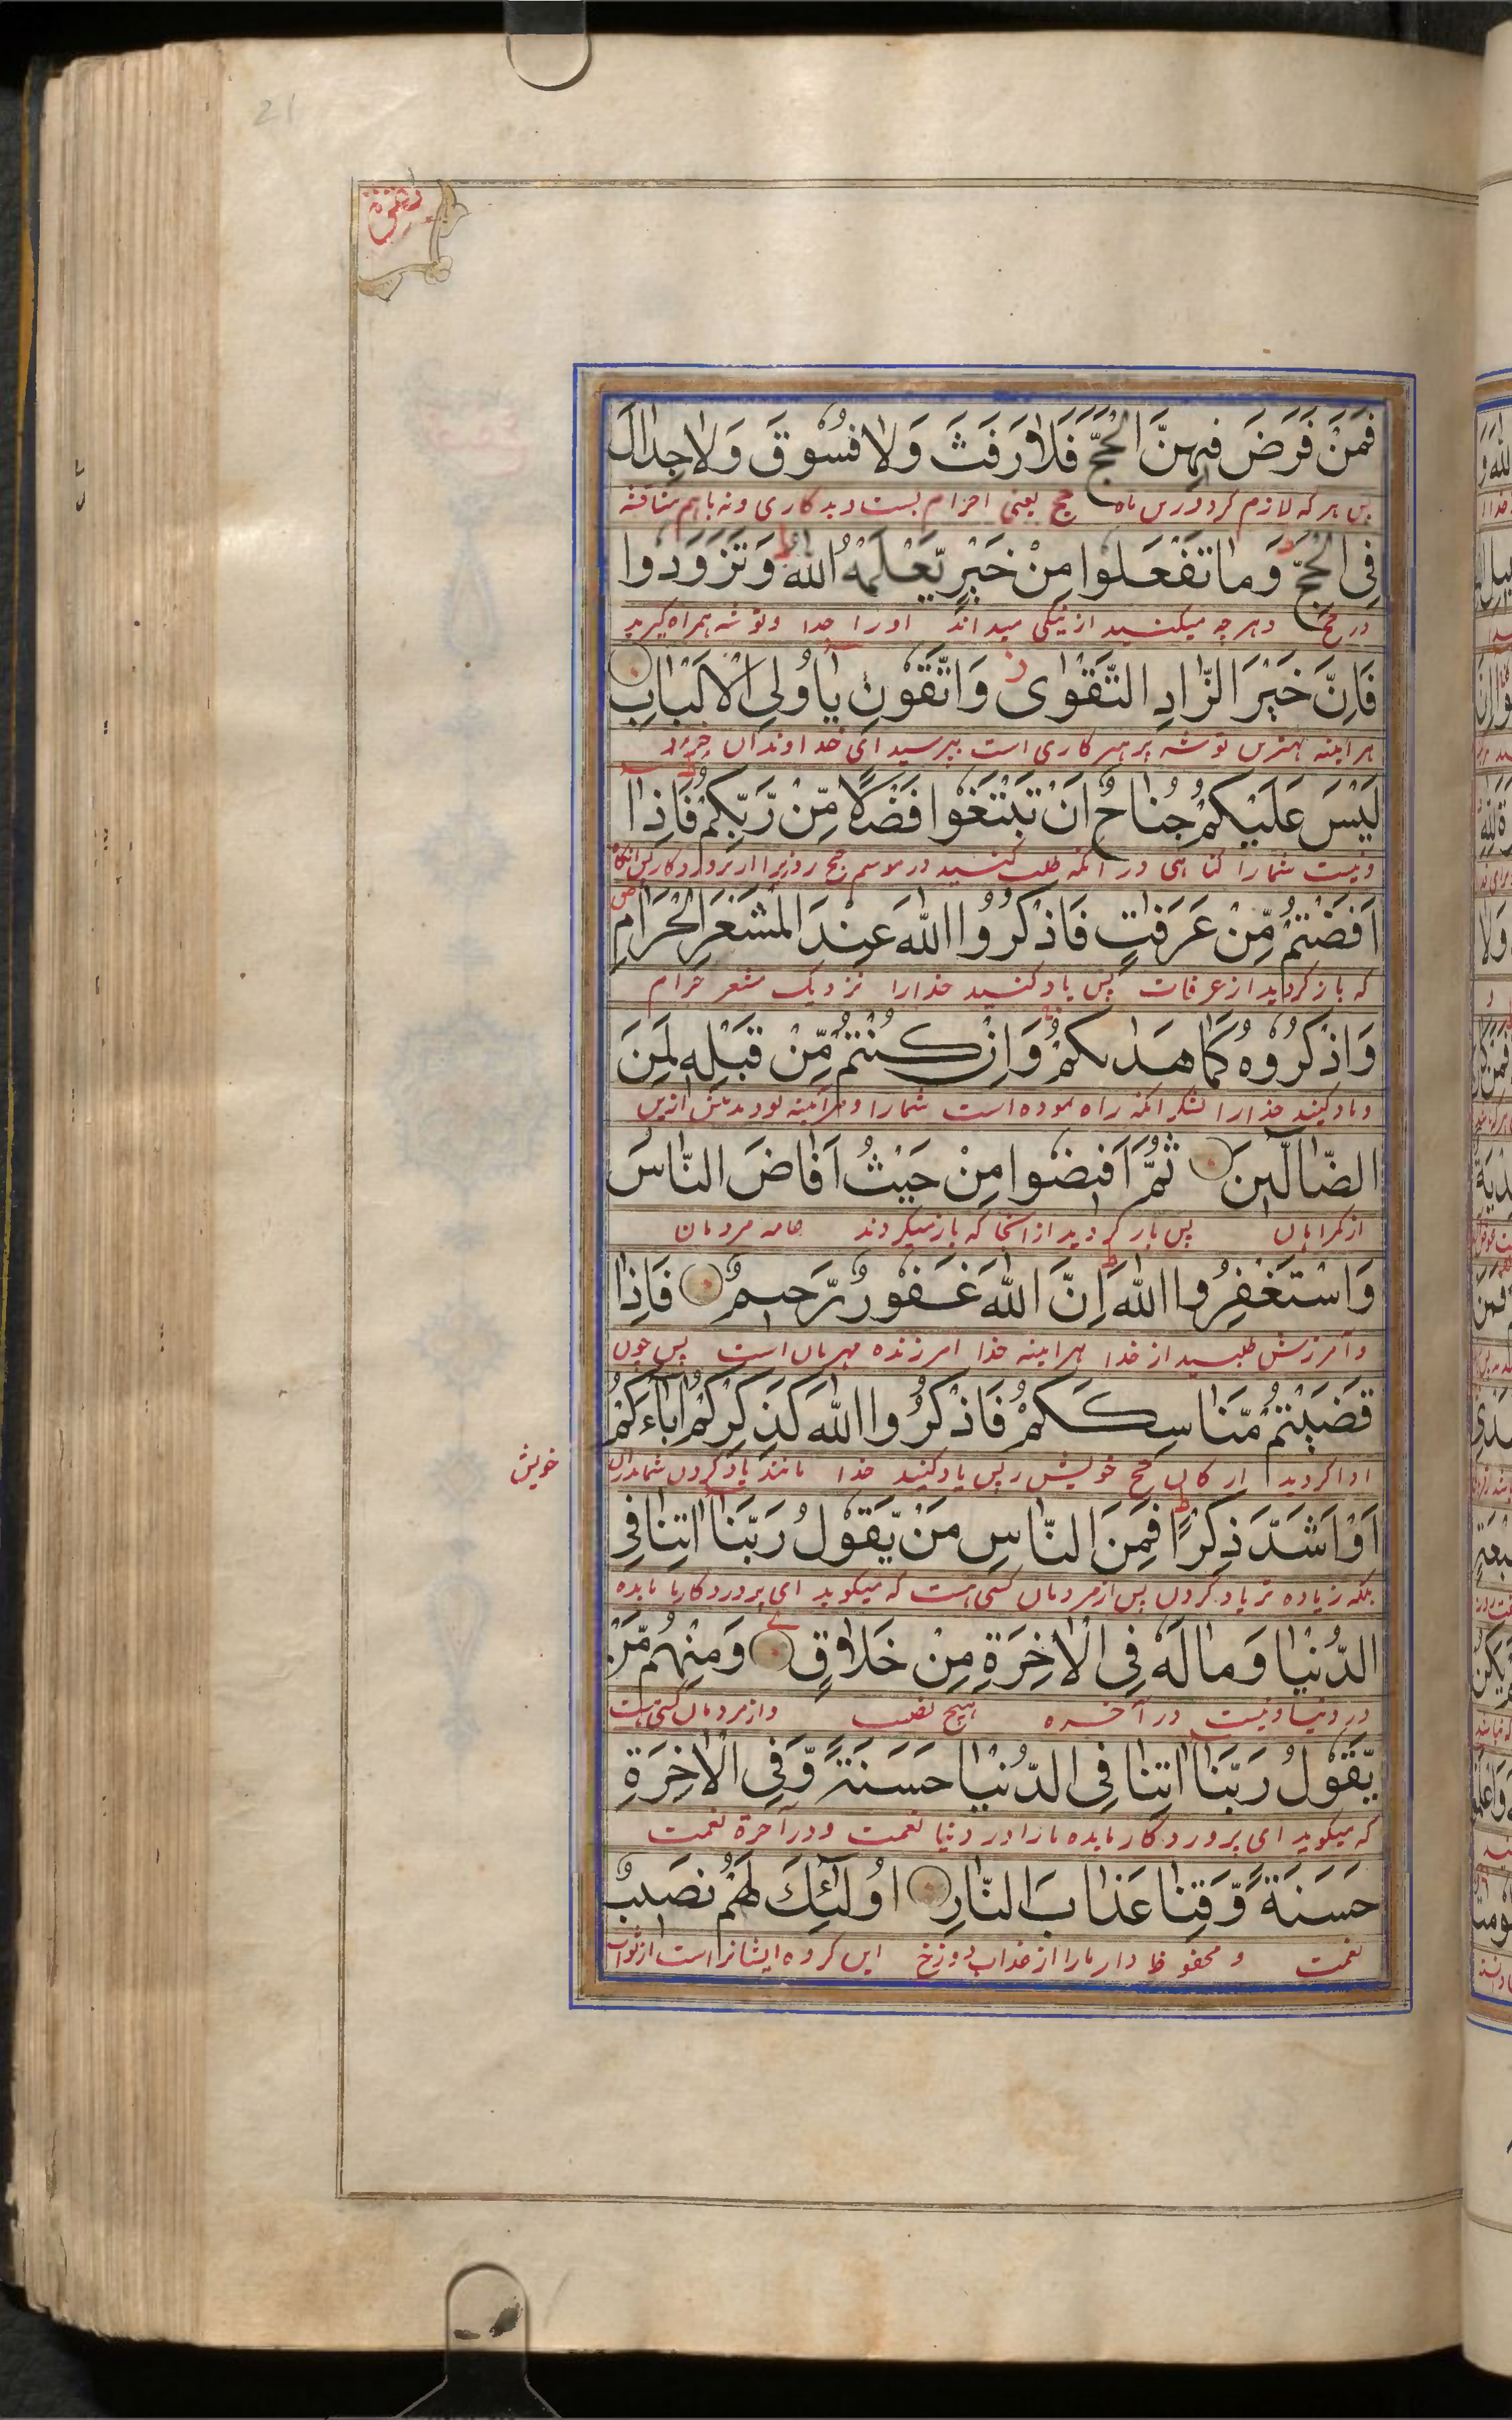 21
فَمَنْ فَرَضَ فِيهِنَّ الْحَجَّ فَلَا رَفَثَ وَلَا فُسُوقَ وَلَا جِدَالَ
پس هر که لازم کرد درین ماه حج یعنی احرام بست و بدکاری و نه باهم مناقشه
فِي الْحَجِّ وَمَا تَفْعَلُوا مِنْ خَيْرٍ يَّعْلَمْهُ اللّٰهُ ط وَتَزَوَّدُوا
در حج و هر چه میکنید از نیکی میداند او را خدا و توشه همراه گیرید
فَاِنَّ خَيْرَ الزَّادِ التَّقْوٰى ز وَاتَّقُونِ يَا اُولِي الْاَلْبَابِ
هر اینه بهترین توشه پرهیزکاری است بپرسید ای خداوندان خرد
لَيْسَ عَلَيْكُمْ جُنَاحٌ اَنْ تَبْتَغُوا فَضْلًا مِّنْ رَّبِّكُمْ ط فَاِذَا
و نیست شمارا گناهی در آنکه طلب کنید در موسم حج روزی را از پروردگار پس آنگاه
اَفَضْتُمْ مِّنْ عَرَفٰتٍ فَاذْكُرُوا اللّٰهَ عِنْدَ الْمَشْعَرِ الْحَرَامِ ص
که باز گردید از عرفات پس یاد کنید خدارا نزدیک مشعر حرام
وَاذْكُرُوهُ كَمَا هَدٰىكُمْ وَاِنْ كُنْتُمْ مِّنْ قَبْلِهٖ لَمِنَ
و یاد کنید خدارا بشکر آنکه راه نموده است شمارا و هر آینه بودید پیش ازین
الضَّالِّينَ ثُمَّ اَفِيضُوا مِنْ حَيْثُ اَفَاضَ النَّاسُ
از گمراهان پس باز گردید از آنجا که باز میگردند عامه مردمان
وَاسْتَغْفِرُوا اللّٰهَ ط اِنَّ اللّٰهَ غَفُورٌ رَّحِيمٌ فَاِذَا
و آمرزش طلبید از خدا هر اینه خدا آمرزنده مهربان است پس چون
قَضَيْتُمْ مَّنَاسِكَكُمْ فَاذْكُرُوا اللّٰهَ كَذِكْرِكُمْ اٰبَاءَكُمْ
ادا کردید ارکان حج خویش پس یاد کنید خدا مانند یاد کردن شما پدران
خویش
اَوْ اَشَدَّ ذِكْرًا ط فَمِنَ النَّاسِ مَنْ يَّقُولُ رَبَّنَا اٰتِنَا فِي
بلکه زیاده تر یاد کردن پس از مردمان کسی هست که میگوید ای پروردگار ما بده
الدُّنْيَا وَمَا لَهٗ فِي الْاٰخِرَةِ مِنْ خَلَاقٍ وَمِنْهُمْ مَّنْ
در دنیا و نیست در آخره هیچ نصیب و از مردمان کسی هست
يَّقُولُ رَبَّنَا اٰتِنَا فِي الدُّنْيَا حَسَنَةً وَّفِي الْاٰخِرَةِ
که میگوید ای پروردگار ما بده مارا در دنیا نعمت و در آخرة نعمت
حَسَنَةً وَّقِنَا عَذَابَ النَّارِ اُولٰٓئِكَ لَهُمْ نَصِيبٌ
نعمت و محفوظ دار مارا از عذاب دوزخ این گروه ایشانراست از ثواب